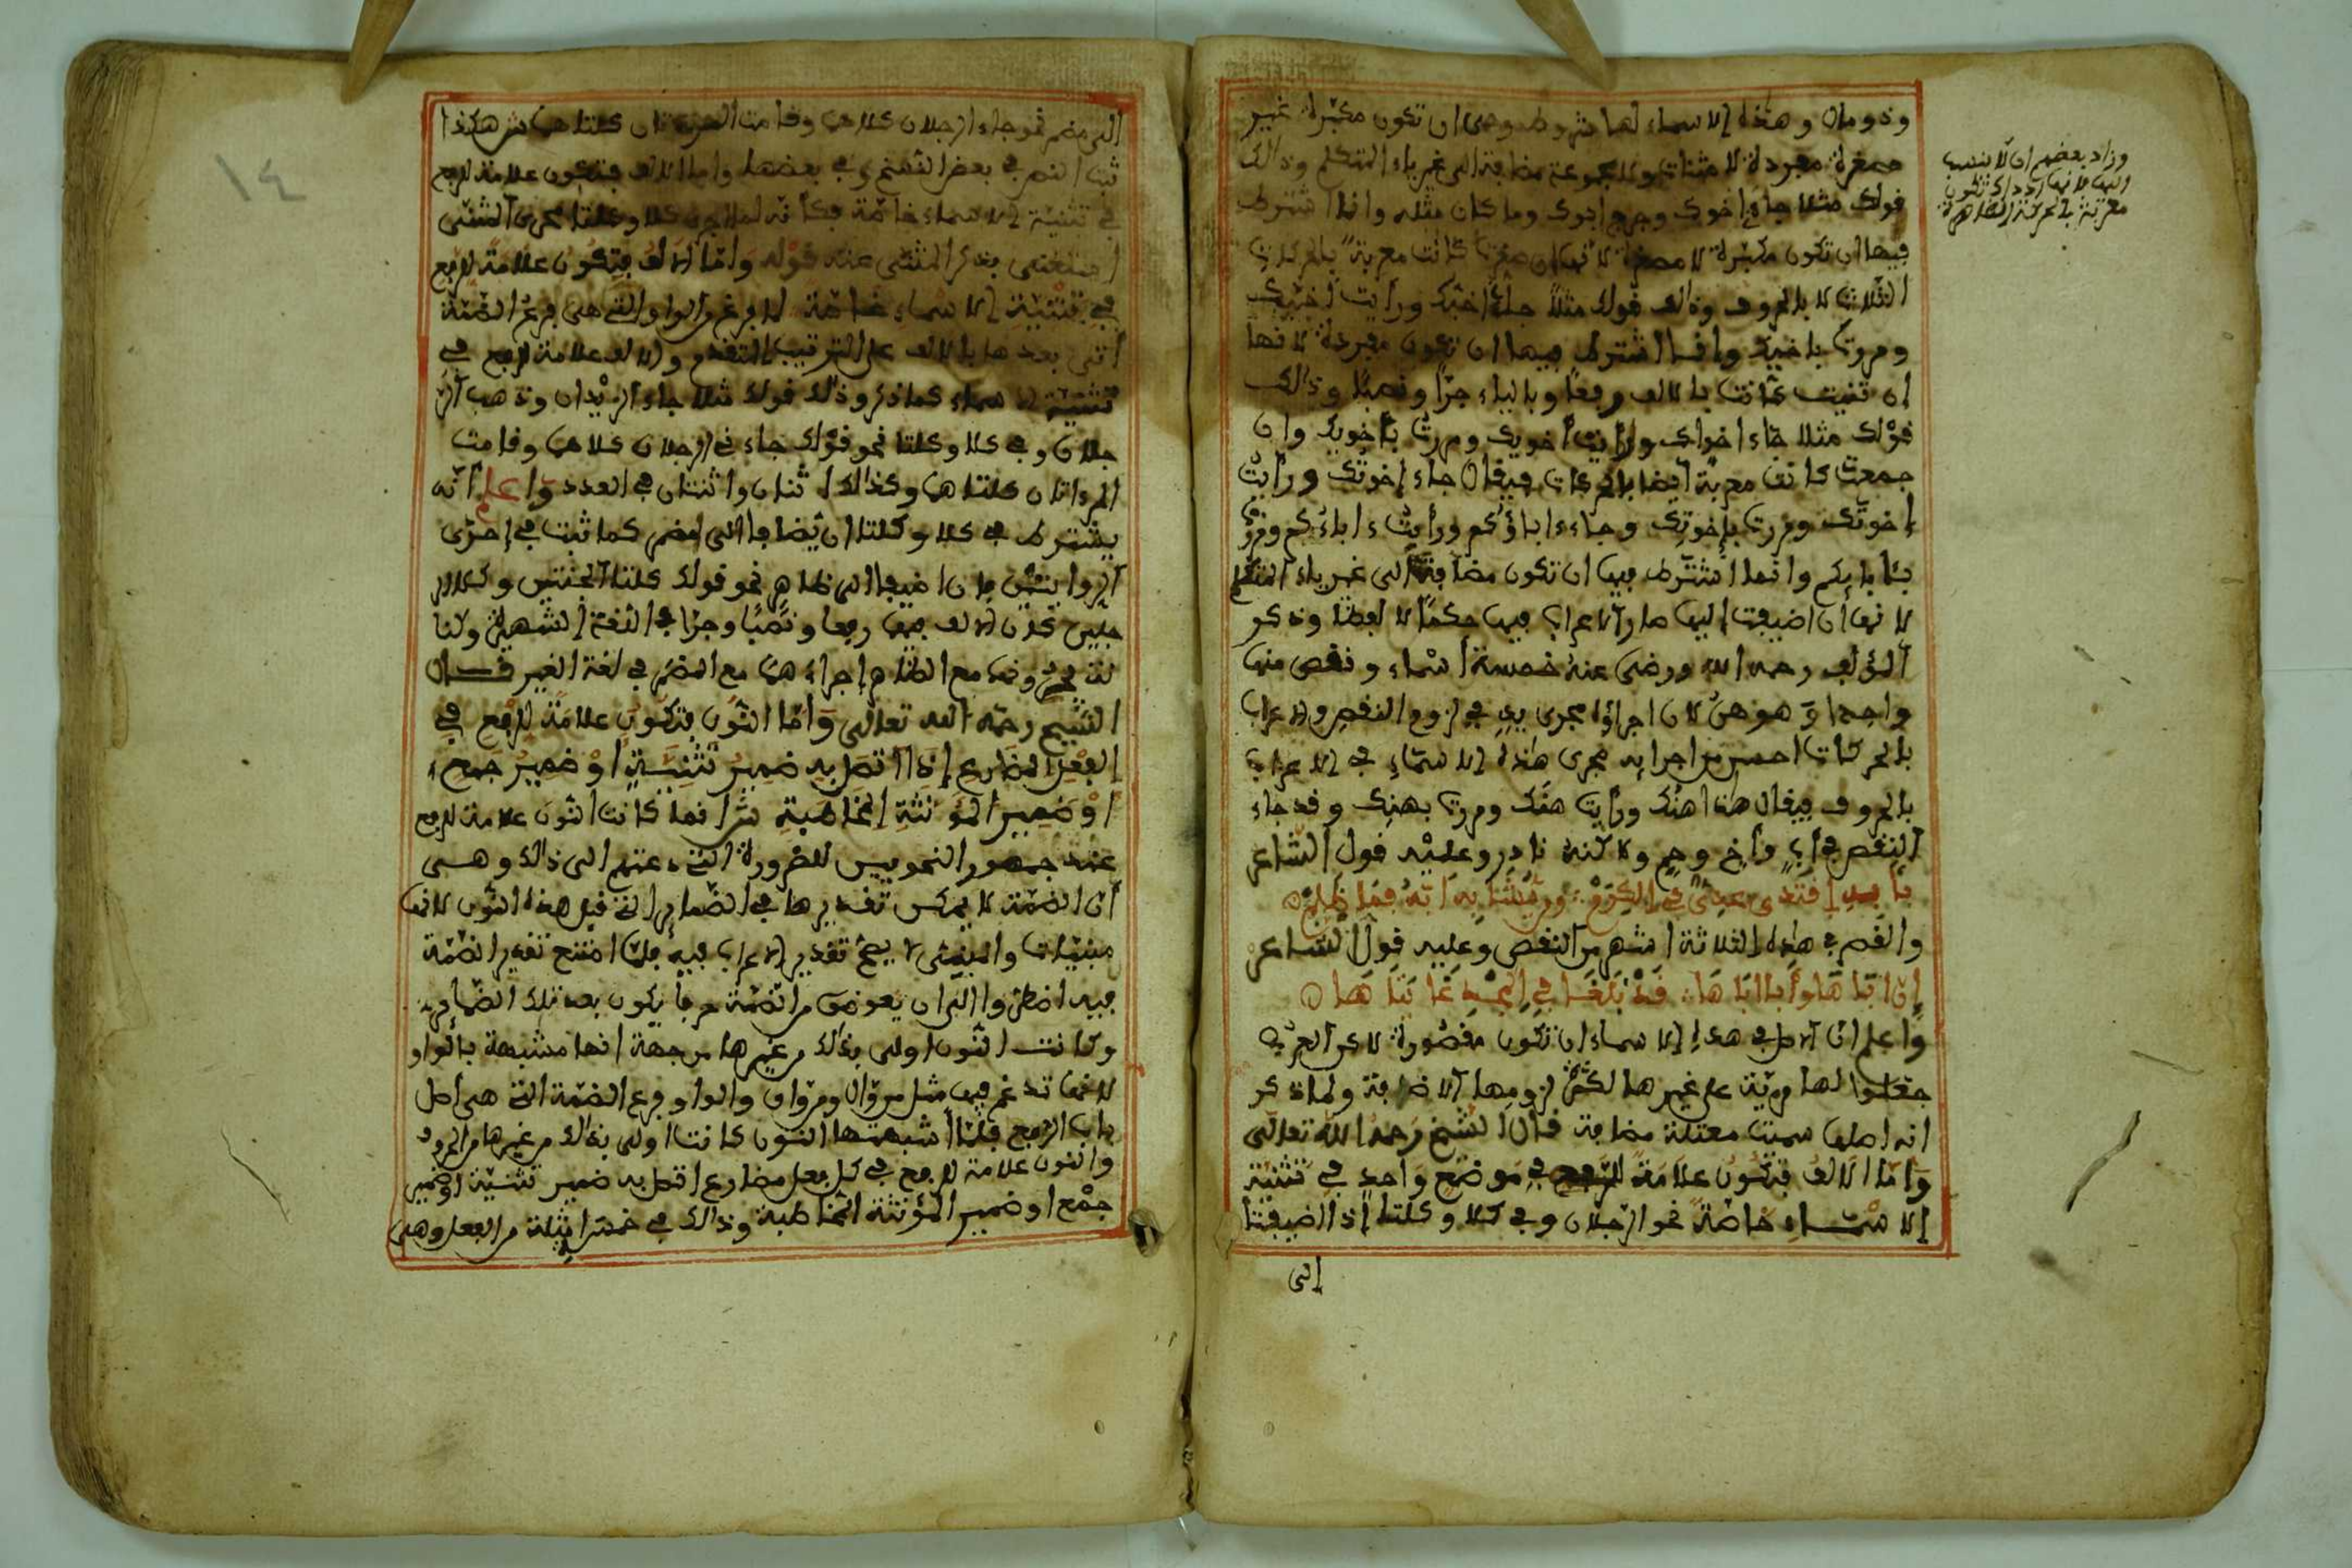 وذو مال وهذه الاسماء لها شروط وهي ان تكون مكبرة غير
مصغرة مفردة لا مثناة ولا مجموعة مضافة الى غير ياء المتكلم وذالك
قولك مثلا جاء اخوك وخرج ابوك وما كان مثله وانما اشترط
فيها ان تكون مكبرة لا مصغرة لانها ان صغرت كانت معربة بالحركات
الثلاث لا بالحروف وذالك قولك مثلا جاء اخيك ورايت اخيك
ومررت باخيك وانما اشترط فيها ان تكون مفردة لانها
ان ثنيت كانت بالالف رفعا وبالياء جرا ونصبا وذالك
قولك مثلا جاء اخواك ورايت اخويك ومررت باخويك وان
جمعت كانت معربة ايضا بالحركات فيقال جاء إخوتك ورأيت
إخوتك ومررت بإخوتك وجاء ءاباؤكم ورأيت ءاباءكم ومررت
بئابائكم وانما اشترط فيها ان تكون مضافة الى غير ياء المتكلم
لانها ان اضيفت إليها صار الاعراب فيها حكما لا لفظا وذكر
المؤلف رحمه الله ورضى عنه خمسة أسماء ونقص منها
واحدا وهو هن لان اجراؤه مجرى يد في لزوم النقص والاعراب
بالحركات احسن من اجرايه مجرى هذه الاسماء في الاعراب
بالحروف فيقال هذا هنك ورأيت هنك ومررت بهنك وقد جاء
النقص في أب وأخ وحم ولاكنه نادر وعليه قول الشاعر
بأبه اقتدى عدى في الكرم ومن يشابه ابه فما ظلم
والقصر في هذه الثلاثة اشهر من النقص وعليه قول الشاعر
إن اباها وأبا اباها قد بلغا في المجد غايتاها
واعلم ان الاصل في هذه الاسماء ان تكون مقصورة لاكن العرب
جعلوا لها مزية على غيرها لكثرة لزومها الاضافة ولما ذكر
انه اصلها سميت معتلة مضافة قال الشيخ رحمه الله تعالى
واما الالف فتكون علامة للرفع في موضع واحد في تثنية
الاسماء خاصة نحو الرجلان وفي كلا وكلتا إذا اضيفتا
إلى
وزاد بعضهم ان لا ينسب
اليها لانها اذ ذاك تكون
معربة بالحركة الظاهرة
١٤
الى مضمر نحو جاء الرجلان كلاهما وقامت المرءتان كلتاهما ش هكذا
ثبت النص في بعض النسخ وفي بعضها واما الالف فتكون علامة للرفع
في تثنية الاسماء خاصة فكأنه لما اجرى كلا وكلتا مجرى المثنى
استغنى بذكر المثنى عنه قوله واما الالف فتكون علامة للرفع
في تثنية الاسماء خاصة لما فرغ من الواو التي هي فرع الضمة
أتى بعدها بالالف على الترتيب المتقدم والالف علامة الرفع في
تثنية الاسماء كما ذكر وذلك قولك مثلا جاء الزيدان وذهب الر
جلان وفي كلا وكلتا نحو قولك جاءني الرجلان كلاهما وقامت
المرءاتان كلتاهما وكذالك اثنان واثنتان في العدد واعلم أنه
يشترط في كلا وكلتا ان يضافا الى مضمر كما ثبت في إحدى
الروايتين فإن اضيفا الى ظاهر نحو قولك كلتا الجنتين وكلا الر
جلين كان الالف فيهما رفعا ونصبا وجرا في اللغة الشهيرة ولنا
لغة تجرونهما مع الظاهر إجراءهما مع المضمر في لغة الغير قال
الشيخ رحمه الله تعالى وأما النون فتكون علامة للرفع في
الفعل المضارع إذا اتصل به ضمير تثنية أو ضمير جمع
أو ضمير المؤنثة المخاطبة ش انما كانت النون علامة للرفع
عند جمهور النحويين للضرورة التي دعتهم الى ذالك وهي
أن الضمة لا يمكن تقديرها في الضماير التي قبل هذه النون لانها
مبنيات والمبنى لا يصح تقدير الاعراب فيه فلما امتنع تقدير الضمة
فيه اضطروا الى ان يعوض من الضمة حرفا يكون بعد تلك الضماير
وكانت النون اولى بذلك من غيرها من جهة انها مشبهة بالواو
لانها تدغم فيها مثل من وال ومن واق والواو فرع الضمة التي هي اصل
باب الرفع فلما أشبهتها النون كانت اولى بذلك من غيرها من الحروف
والنون علامة للرفع في كل فعل مضارع اتصل به ضمير تثنية او ضمير
جمع او ضمير المؤنثة المخاطبة وذالك في خمسة امثلة من الفعل وهي